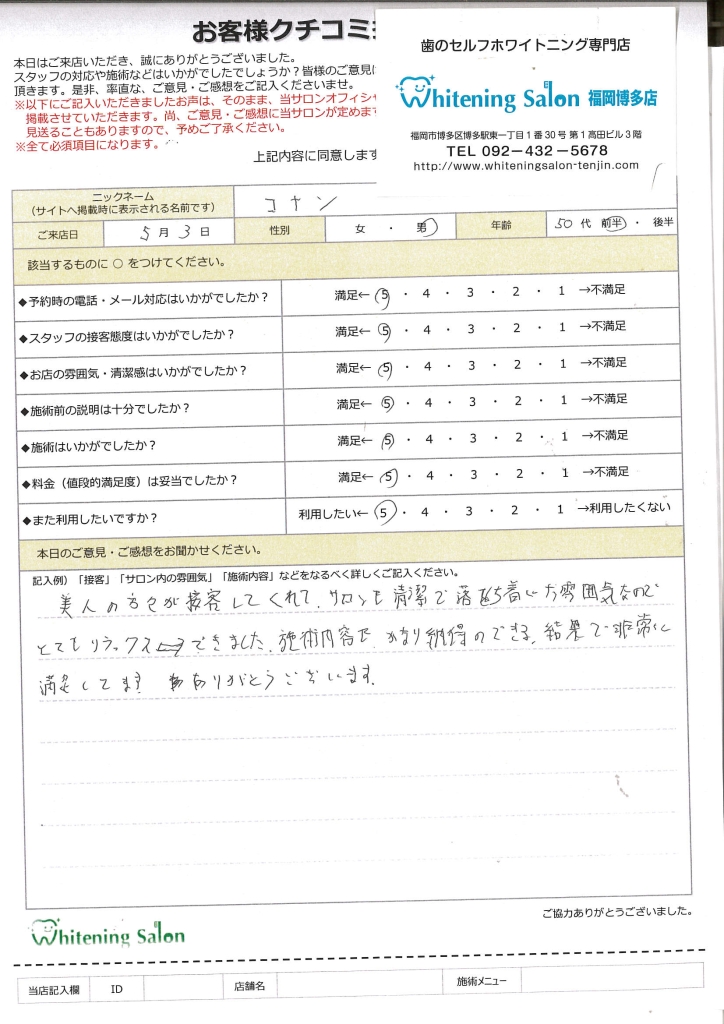 お客様クチコミ
本日はご来店いただき、誠にありがとうございました。
スタッフの対応や施術などはいかがでしたでしょうか？皆様のご意見
頂きます。是非、率直な、ご意見・ご感想をご記入くださいませ。
※以下にご記入いただきましたお声は、そのまま、当サロンオフィシ
掲載させていただきます。尚、ご意見・ご感想に当サロンが定めま
見送ることもありますので、予めご了承ください。
※全て必須項目になります。
上記内容に同意します
歯のセルフホワイトニング専門店
Whitening Salon 福岡博多店
福岡市博多区博多駅東一丁目1番30号 第1高田ビル3階
TEL 092-432-5678
http://www.whiteningsalon-tenjin.com
ニックネーム
（サイトへ掲載時に表示される名前です） コナン
ご来店日 5月3日 性別 女 ・ 男 年齢 50代 前半 ・ 後半
該当するものに ○ をつけてください。
◆予約時の電話・メール対応はいかがでしたか？ 満足← 5 ・ 4 ・ 3 ・ 2 ・ 1 →不満足
◆スタッフの接客態度はいかがでしたか？ 満足← 5 ・ 4 ・ 3 ・ 2 ・ 1 →不満足
◆お店の雰囲気・清潔感はいかがでしたか？ 満足← 5 ・ 4 ・ 3 ・ 2 ・ 1 →不満足
◆施術前の説明は十分でしたか？ 満足← 5 ・ 4 ・ 3 ・ 2 ・ 1 →不満足
◆施術はいかがでしたか？ 満足← 5 ・ 4 ・ 3 ・ 2 ・ 1 →不満足
◆料金（値段的満足度）は妥当でしたか？ 満足← 5 ・ 4 ・ 3 ・ 2 ・ 1 →不満足
◆また利用したいですか？ 利用したい← 5 ・ 4 ・ 3 ・ 2 ・ 1 →利用したくない
本日のご意見・ご感想をお聞かせください。
記入例）「接客」「サロン内の雰囲気」「施術内容」などをなるべく詳しくご記入ください。
美人の方々が接客してくれて、サロンも清潔で落ち着いた雰囲気なので
とてもリラックスできました。施術内容も かなり納得のできる、結果で非常に
満足してます ありがとうございます。
ご協力ありがとうございました。
Whitening Salon
当店記入欄 ID 店舗名 施術メニュー